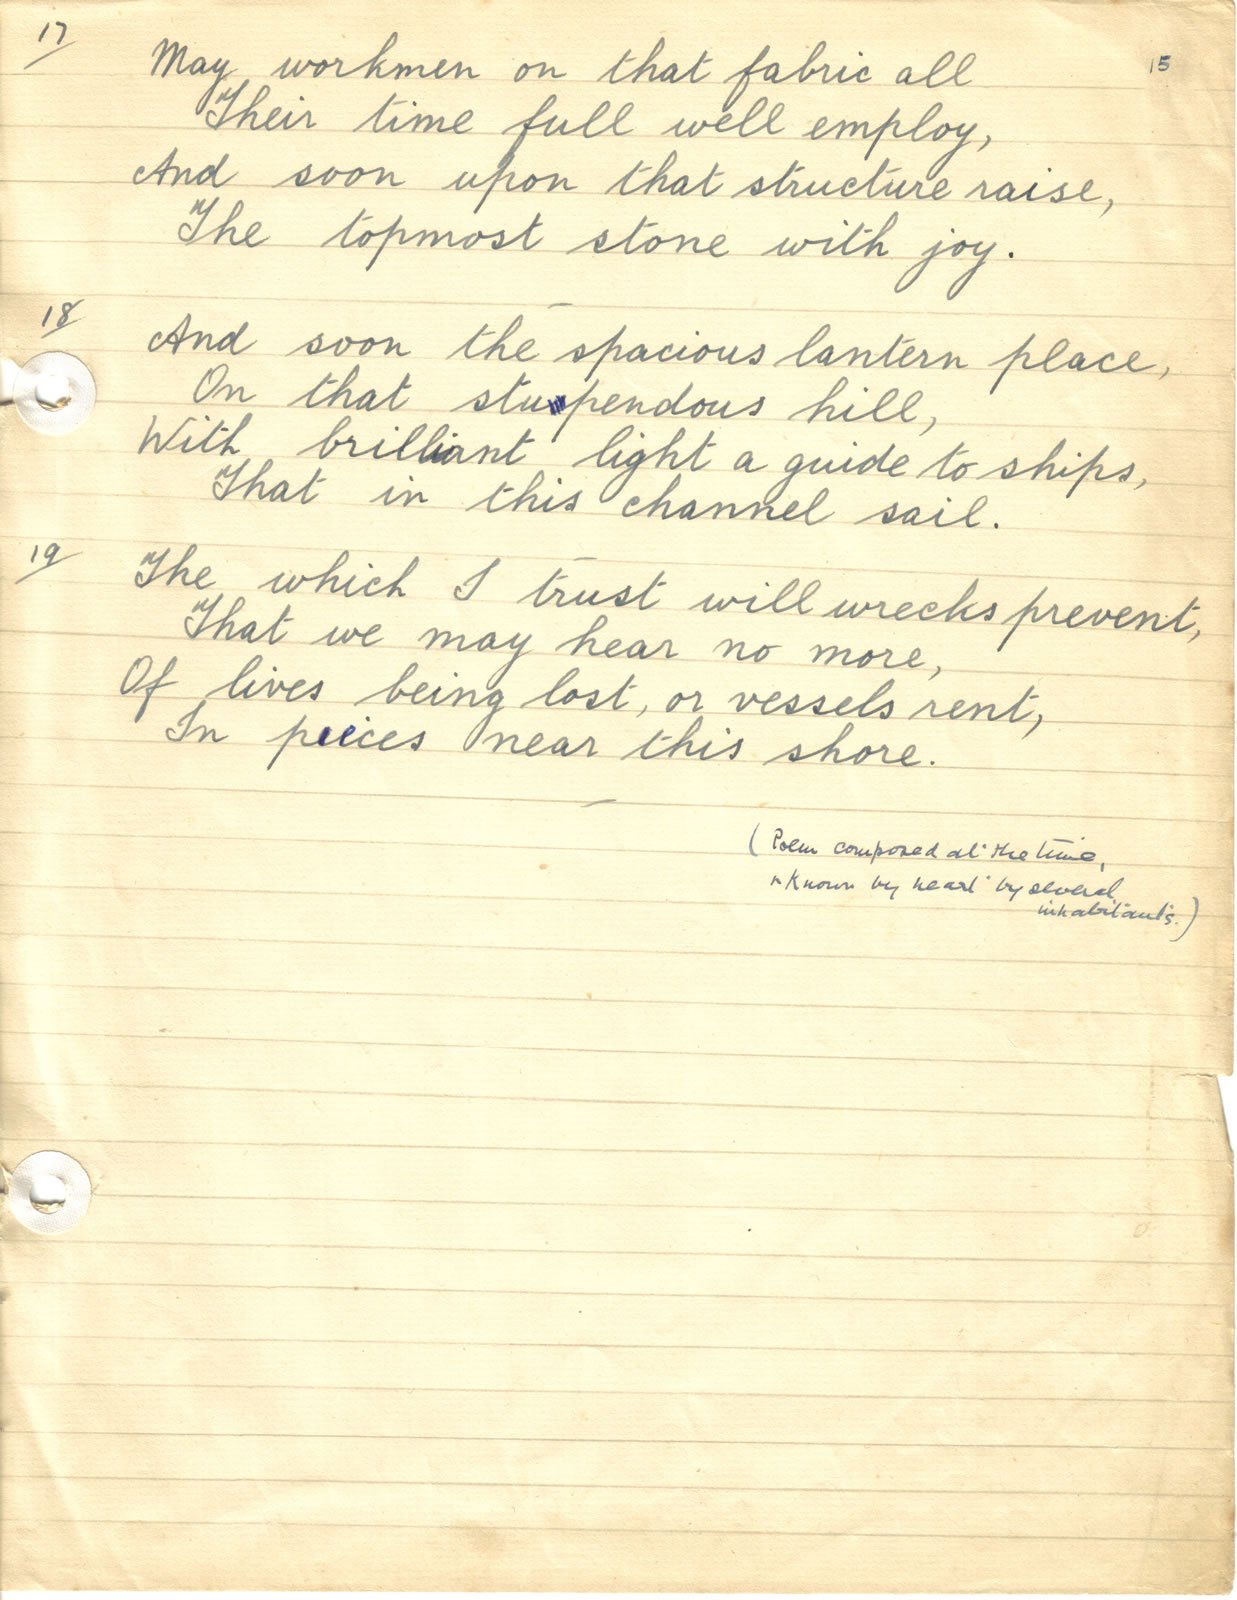 17
15
May workmen on that fabric all
Their time full well employ,
And soon upon that structure raise,
The topmost stone with joy.
18
And soon the spacious lantern place,
On that stupendous hill,
With brilliant light a guide to ships,
That in this channel sail.
19
The which I trust will wrecks prevent,
That we may hear no more,
Of lives being lost, or vessels rent,
In peices near this shore.
(Poem composed at the time,
& known by heart by several
inhabitants.)